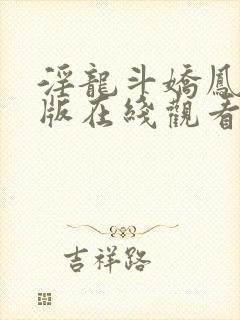 淫龍斗嬌鳳
版在綫觀看
吉祥路